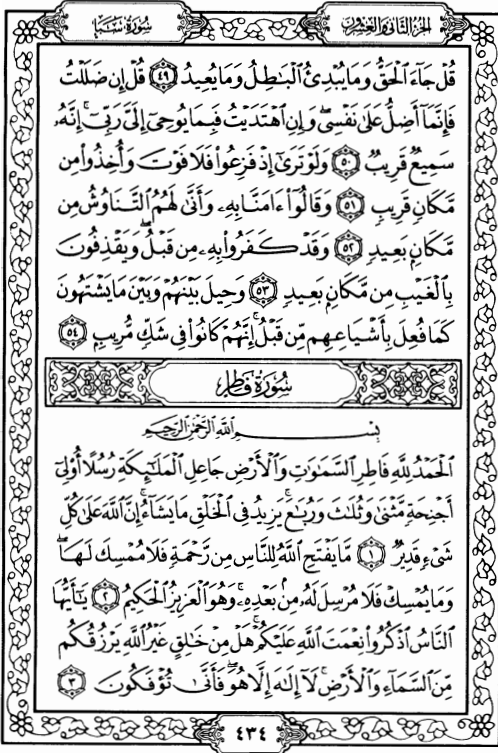 الجزء الثاني والعشرون
سورة سبأ
قُلْ جَآءَ ٱلْحَقُّ وَمَا يُبْدِئُ ٱلْبَٰطِلُ وَمَا يُعِيدُ ٤٩ قُلْ إِن ضَلَلْتُ
فَإِنَّمَآ أَضِلُّ عَلَىٰ نَفْسِى ۖ وَإِنِ ٱهْتَدَيْتُ فَبِمَا يُوحِىٓ إِلَىَّ رَبِّىٓ ۚ إِنَّهُۥ
سَمِيعٌ قَرِيبٌ ٥٠ وَلَوْ تَرَىٰٓ إِذْ فَزِعُوا۟ فَلَا فَوْتَ وَأُخِذُوا۟ مِن
مَّكَانٍ قَرِيبٍ ٥١ وَقَالُوٓا۟ ءَامَنَّا بِهِۦ وَأَنَّىٰ لَهُمُ ٱلتَّنَاوُشُ مِن
مَّكَانٍۭ بَعِيدٍ ٥٢ وَقَدْ كَفَرُوا۟ بِهِۦ مِن قَبْلُ ۖ وَيَقْذِفُونَ
بِٱلْغَيْبِ مِن مَّكَانٍۭ بَعِيدٍ ٥٣ وَحِيلَ بَيْنَهُمْ وَبَيْنَ مَا يَشْتَهُونَ
كَمَا فُعِلَ بِأَشْيَاعِهِم مِّن قَبْلُ ۚ إِنَّهُمْ كَانُوا۟ فِى شَكٍّ مُّرِيبٍۭ ٥٤
سُورَةُ فَاطِرٍ
بِسْمِ ٱللَّهِ ٱلرَّحْمَٰنِ ٱلرَّحِيمِ
ٱلْحَمْدُ لِلَّهِ فَاطِرِ ٱلسَّمَٰوَٰتِ وَٱلْأَرْضِ جَاعِلِ ٱلْمَلَٰٓئِكَةِ رُسُلًا أُو۟لِىٓ
أَجْنِحَةٍ مَّثْنَىٰ وَثُلَٰثَ وَرُبَٰعَ ۚ يَزِيدُ فِى ٱلْخَلْقِ مَا يَشَآءُ ۚ إِنَّ ٱللَّهَ عَلَىٰ كُلِّ
شَىْءٍ قَدِيرٌ ١ مَّا يَفْتَحِ ٱللَّهُ لِلنَّاسِ مِن رَّحْمَةٍ فَلَا مُمْسِكَ لَهَا ۖ
وَمَا يُمْسِكْ فَلَا مُرْسِلَ لَهُۥ مِنۢ بَعْدِهِۦ ۚ وَهُوَ ٱلْعَزِيزُ ٱلْحَكِيمُ ٢ يَٰٓأَيُّهَا
ٱلنَّاسُ ٱذْكُرُوا۟ نِعْمَتَ ٱللَّهِ عَلَيْكُمْ ۚ هَلْ مِنْ خَٰلِقٍ غَيْرُ ٱللَّهِ يَرْزُقُكُم
مِّنَ ٱلسَّمَآءِ وَٱلْأَرْضِ ۚ لَآ إِلَٰهَ إِلَّا هُوَ ۖ فَأَنَّىٰ تُؤْفَكُونَ ٣
٤٣٤